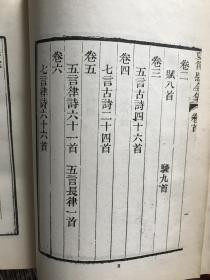 卷二
賦八首
騷九首
卷三
五言古詩四十六首
卷四
七言古詩二十四首
卷五
五言律詩六十一首 五言長律一首
卷六
七言律詩六十六首